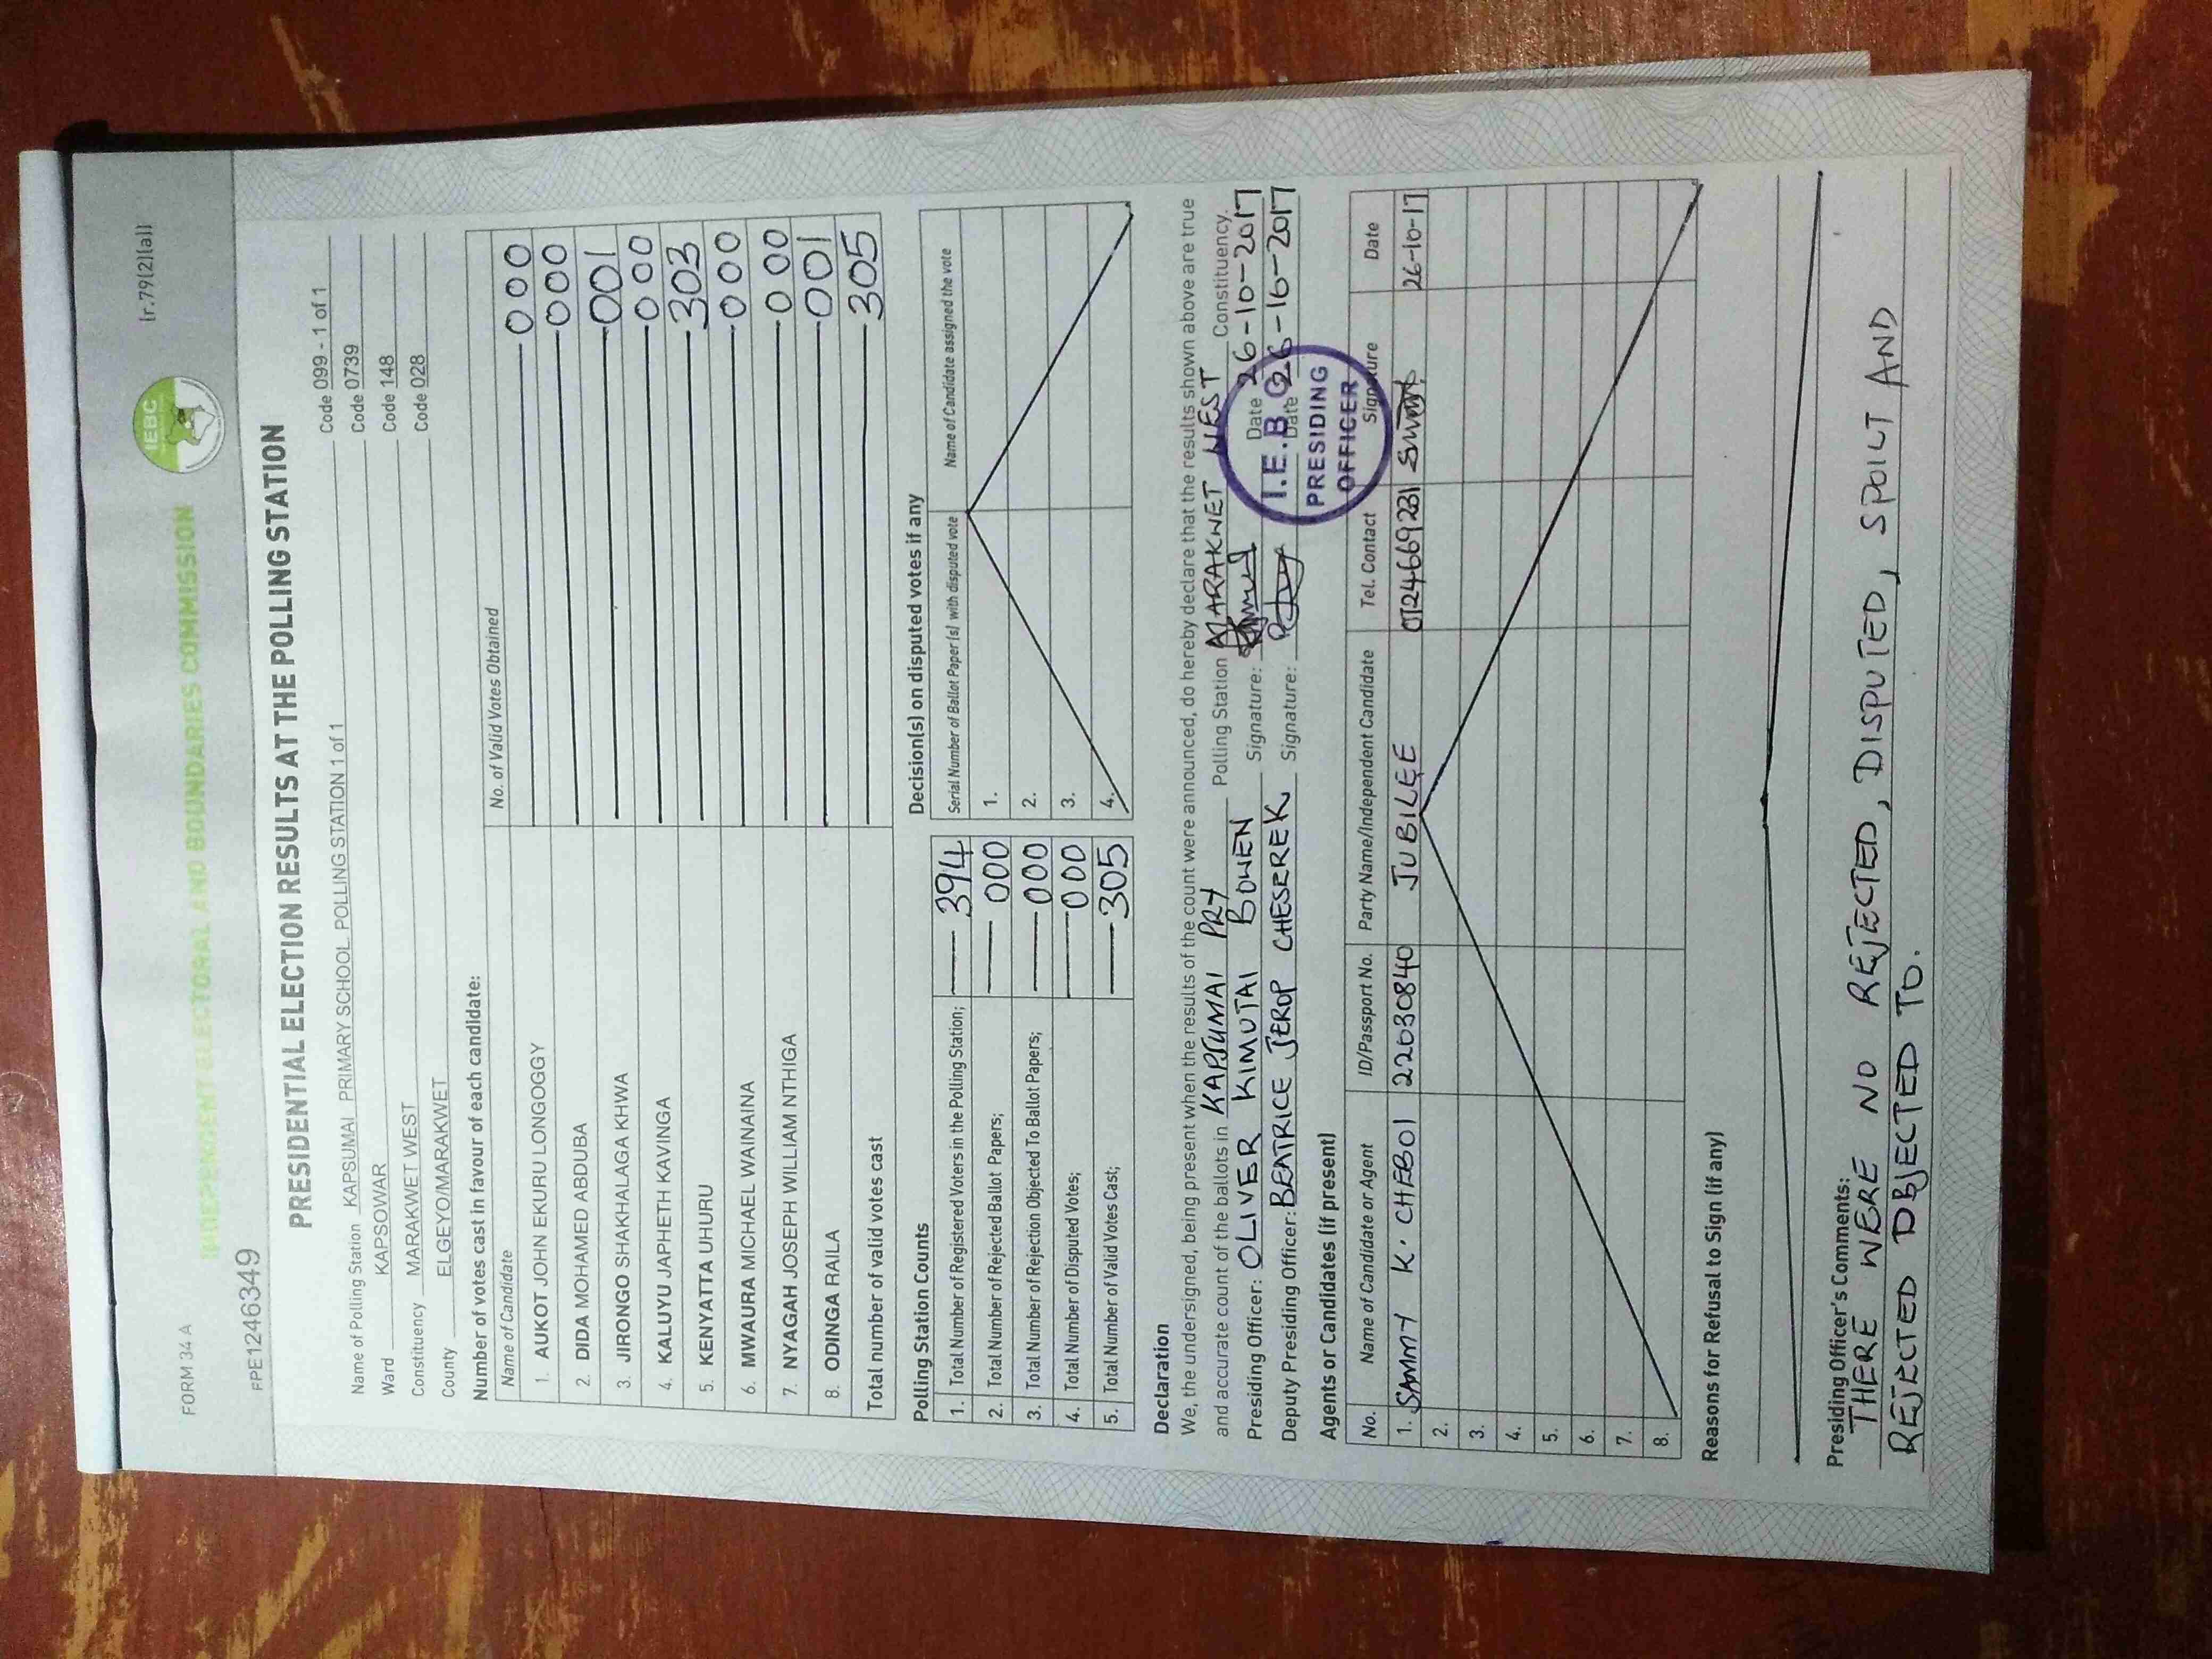 FORM 34 A
(r.79(2)(a))
IEBC
INDEPENDENT ELECTORAL AND BOUNDARIES COMMISSION
FPE1246349
PRESIDENTIAL ELECTION RESULTS AT THE POLLING STATION
Name of Polling Station KAPSUMAI PRIMARY SCHOOL POLLING STATION 1 of 1 Code 099 - 1 of 1
Ward KAPSOWAR Code 0739
Constituency MARAKWET WEST Code 148
County ELGEYO/MARAKWET Code 028
Number of votes cast in favour of each candidate:
Name of Candidate No. of Valid Votes Obtained
1. AUKOT JOHN EKURU LONGOGGY 000
2. DIDA MOHAMED ABDUBA 000
3. JIRONGO SHAKHALAGA KHWA 001
4. KALUYU JAPHETH KAVINGA 000
5. KENYATTA UHURU 303
6. MWAURA MICHAEL WAINAINA 000
7. NYAGAH JOSEPH WILLIAM NTHIGA 000
8. ODINGA RAILA 001
Total number of valid votes cast 305
Polling Station Counts
1. Total Number of Registered Voters in the Polling Station; 394
2. Total Number of Rejected Ballot Papers; 000
3. Total Number of Rejection Objected To Ballot Papers; 000
4. Total Number of Disputed Votes; 000
5. Total Number of Valid Votes Cast; 305
Decision(s) on disputed votes if any
Serial Number of Ballot Paper (s) with disputed vote Name of Candidate assigned the vote
1.
2.
3.
4.
Declaration
We, the undersigned, being present when the results of the count were announced, do hereby declare that the results shown above are true
and accurate count of the ballots in KAPSUMAI PRY Polling Station MARAKWET WEST Constituency.
Presiding Officer: OLIVER KIMUTAI BOWEN Signature: Date 26-10-2017
Deputy Presiding Officer: BEATRICE JEROP CHESEREK Signature: Date 26-10-2017
I.E.B.C
PRESIDING
OFFICER
Agents or Candidates (if present)
No. Name of Candidate or Agent ID/Passport No. Party Name/Independent Candidate Tel. Contact Signature Date
1. SAMMY K. CHEBOI 22030840 JUBILEE 0724669231 26-10-17
2.
3.
4.
5.
6.
7.
8.
Reasons for Refusal to Sign (if any)
Presiding Officer's Comments:
THERE WERE NO REJECTED, DISPUTED, SPOILT AND
REJECTED OBJECTED TO.